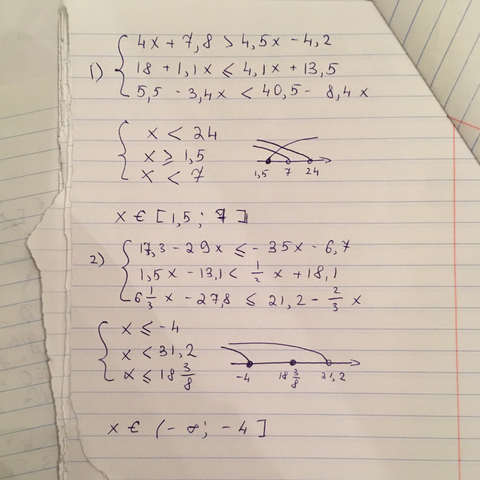 1) { 4x + 7,8 > 4,5x - 4,2
18 + 1,1x ≤ 4,1x + 13,5
5,5 - 3,4x < 40,5 - 8,4x
{ x < 24
x ≥ 1,5
x < 7
1,5 7 24
x ∈ [1,5 ; 7]
2) { 17,3 - 29x ≤ - 35x - 6,7
1,5x - 13,1 < 1/2 x + 18,1
6 1/3 x - 27,8 ≤ 21,2 - 2/3 x
{ x ≤ -4
x < 31,2
x ≤ 18 3/8
-4 18 3/8 31,2
x ∈ (- ∞ ; - 4 ]